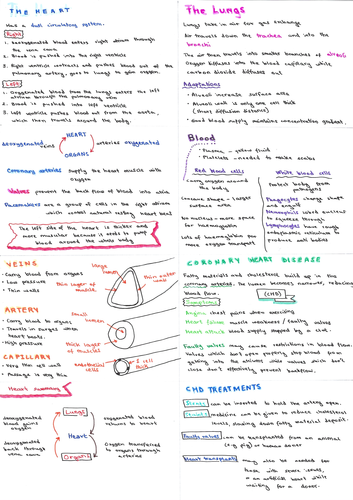 THE HEART
Have a dual circulatory system.
Right
1. Deoxygenated blood enters right atrium through the vena cava.
2. Blood is pushed into the right ventricle
3. Right ventricle contracts and pushes blood out of the pulmonary artery, goes to lungs to gain oxygen.
Left
1. Oxygenated blood from the lungs enters the left atrium through the pulmonary vein
2. Blood is pushed into left ventricle.
3. Left ventricle pushes blood out from the aorta, which then travels around the body.
HEART
deoxygenated
veins
arteries oxygenated
ORGANS
Coronary arteries supply the heart muscles with oxygen
Valves prevent the back flow of blood into atria.
Pacemakers are a group of cells in the right atrium which control natural resting heart beat
The left side of the heart is thicker and more muscular because it needs to pump blood around the whole body
VEINS
- Carry blood from organs
- Low pressure
- Thin walls
large lumen
thin layer of muscle
thin outer wall
ARTERY
- Carry blood to organs
- Travels in surges when heart beats.
- High pressure
small lumen
thick layer of muscles
CAPILLARY
- Very thin cell wall
- Passage is very thin
endothelial cells
1 cell thick
Heart summary
Lungs
deoxygenated blood gains oxygen
oxygenated blood returns to heart
Heart
deoxygenated back through vena cava
Oxygen transferred to organs through arteries
Organs
The Lungs
Lungs take in air for gas exchange.
Air travels down the trachea and into the bronchi.
The air then travels into smaller branches of alveoli
Oxygen diffuses into the blood capillary while carbon dioxide diffuses out.
Adaptations
- Alveoli increase surface area
- Alveoli wall is only one cell thick (short diffusion distance)
- Good blood supply maintains concentration gradient.
Blood
- Plasma - yellow fluid
- Platelets - needed to make scabs
Red blood cells
Carry oxygen around the body
Concave shape - larger surface area
No nucleus - more space for haemoglobin
Lots of haemoglobin for more oxygen transport
White blood cells
Protect body from pathogens
Phagocytes change shape and
lymphocytes have rough endoplasmic reticulum to produce anti bodies
CORONARY HEART DISEASE
Fatty materials and cholesterol build up in the coronary arteries. The lumen becomes narrower, reducing blood flow.
(CHD)
Symptoms
Angina chest pains when exercising
Heart failure muscle weakness / faulty valves
Heart attack blood supply stopped by a clot.
Faulty valves may cause restrictions in blood flow. Valves which don't open properly stop blood from getting into the atriums while valves which don't close don't effectively prevent backflow.
CHD TREATMENTS
Stents can be inserted to hold the artery open.
Statins medicine can be given to reduce cholesterol levels, slowing down fatty material deposit.
Faulty valves can be transplanted from an animal (e.g pig) or human donor
Heart transplants may also be needed for those with severe issues, or an artificial heart while waiting for a donor.